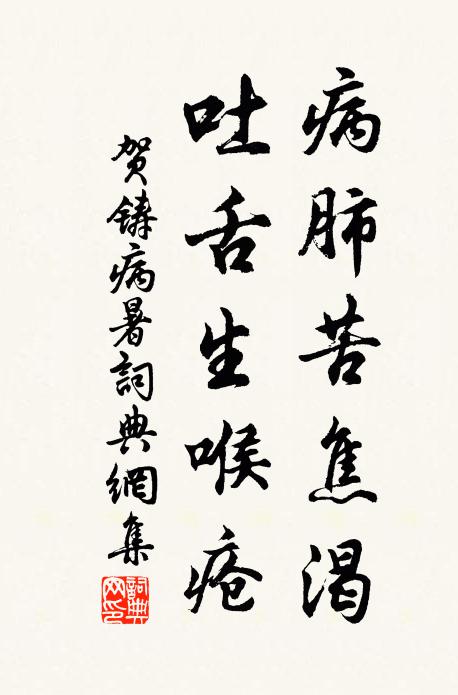 病肺苦焦渴
吐舌生喉疮
贺铸病暑詞典網集
詞典网印